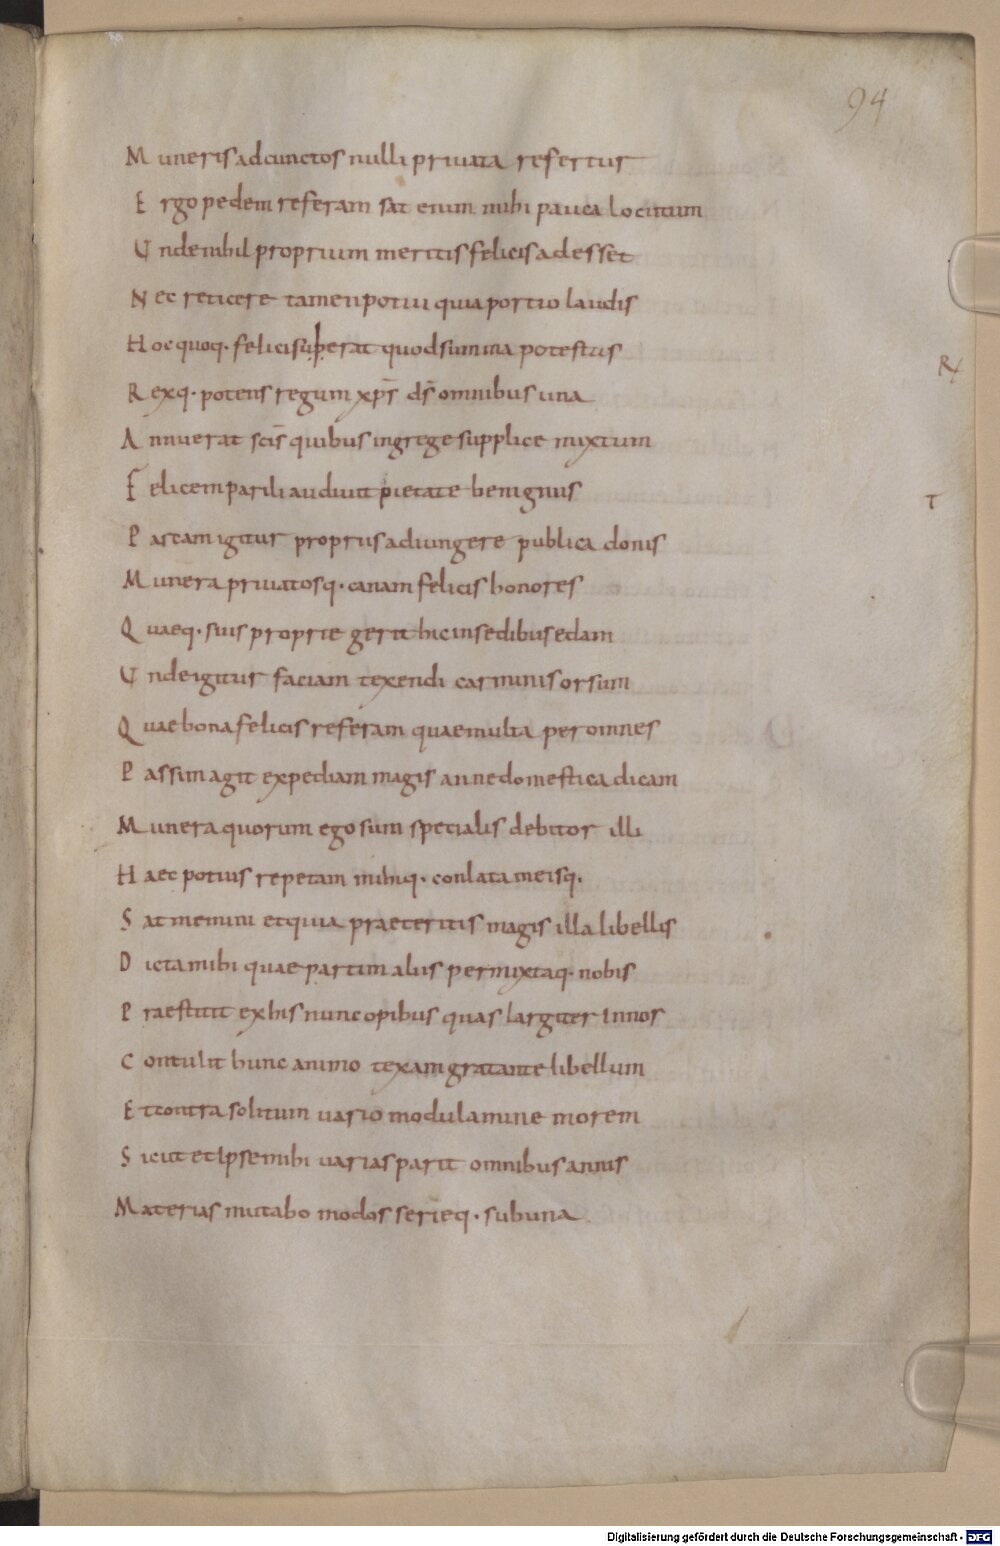 94
Muneris ad cunctos nulli priuata refertur
Ergo pedem referam sat enim mihi pauca locutum
Unde nihil proprium meritis felicis adesset
Nec reticere tamen potui quia portio laudis
Hoc quoq· felicis uperat quod summa potestas
R
Rexq· potens regum xp̄s ds̄ omnibus una
Annuerat scīs quibus in grege supplice mixtum
Felicem parili audiuit pietate benignus
T
Partam igitur propriis adiungere publica donis
Munera priuatosq· canam felicis honores
Quaeq· suis proprie gerit hic in sedibus edam
Unde igitur faciam texendi carminis orsum
Quae bona felicis referam quae multa per omnes
Passim agit expediam magis anne domestica dicam
Munera quorum ego sum specialis debitor illi
Haec potius repetam mihiq· conlata meisq·
Sat memini et quia praeteritis magis illa libellis
Dicta mihi quae partim aliis permixtaq· nobis
Praestitit ex his nunc opibus quas largiter in nos
Contulit hunc animo texam gratante libellum
Et contra solitum uario modulamine morem
Sicut et ipse mihi uarias parit omnibus annis
Materias mutabo modos serieq· sub una
Digitalisierung gefördert durch die Deutsche Forschungsgemeinschaft - DFG